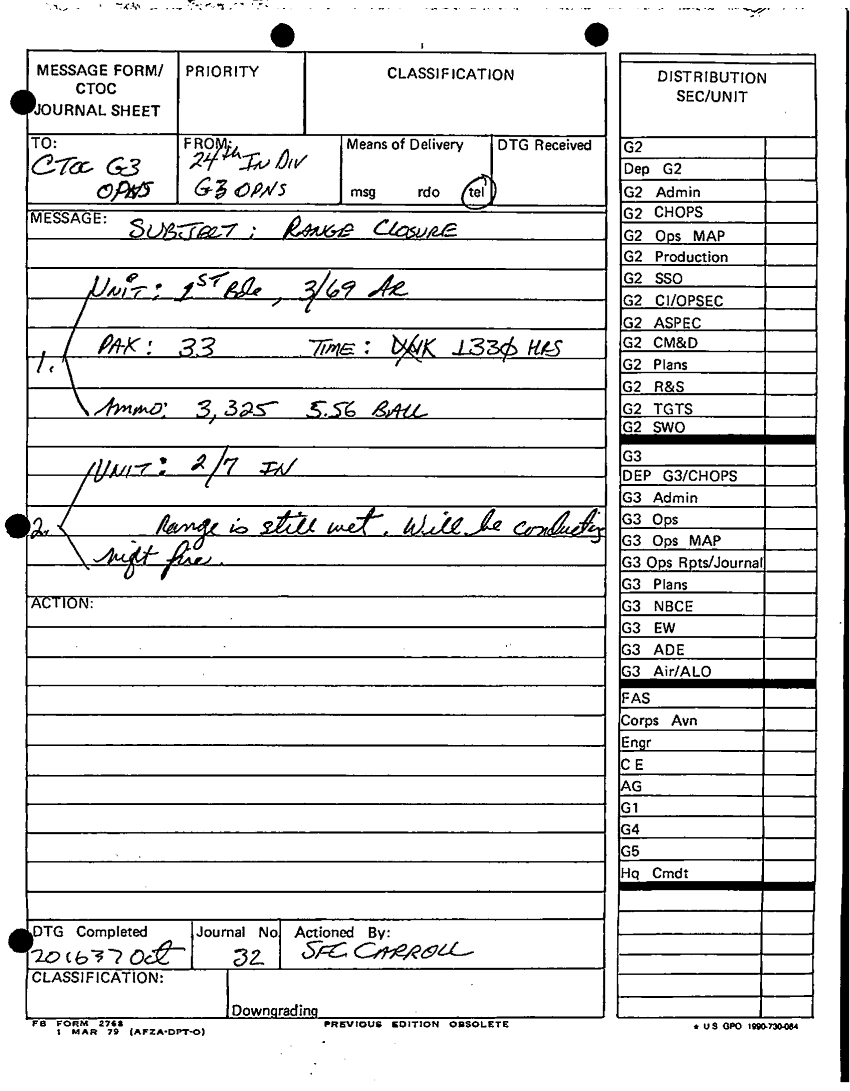 MESSAGE FORM/
CTOC
JOURNAL SHEET
PRIORITY
CLASSIFICATION
TO:
CTOC G3
OPNS
FROM:
24th IN DIV
G3 OPNS
Means of Delivery
msg rdo tel
DTG Received
MESSAGE: SUBJECT: RANGE CLOSURE
UNIT: 1ST Bde, 3/69 AR
1. PAX: 33 TIME: 1330 HRS
Ammo: 3,325 5.56 BALL
UNIT: 2/7 IN
2. Range is still wet. Will be conducting
night fire.
ACTION:
DTG Completed
201637 Oct
Journal No
32
Actioned By:
SFC CARROLL
CLASSIFICATION:
Downgrading
FB FORM 2768
1 MAR 79 (AFZA-DPT-O)
PREVIOUS EDITION OBSOLETE
DISTRIBUTION
SEC/UNIT
G2
Dep G2
G2 Admin
G2 CHOPS
G2 Ops MAP
G2 Production
G2 SSO
G2 CI/OPSEC
G2 ASPEC
G2 CM&D
G2 Plans
G2 R&S
G2 TGTS
G2 SWO
G3
DEP G3/CHOPS
G3 Admin
G3 Ops
G3 Ops MAP
G3 Ops Rpts/Journal
G3 Plans
G3 NBCE
G3 EW
G3 ADE
G3 Air/ALO
FAS
Corps Avn
Engr
C E
AG
G1
G4
G5
Hq Cmdt
* U S GPO 1990-730-084